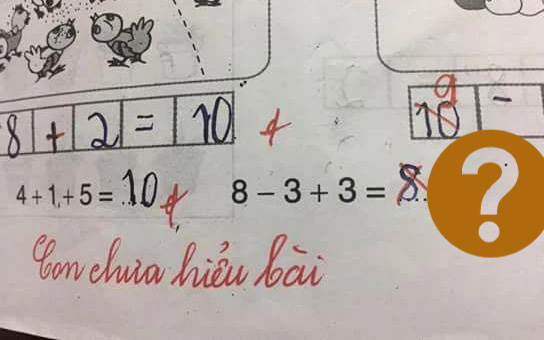 9
8 + 2 = 10
10 -
4 + 1 + 5 = 10
8 – 3 + 3 = 8
Con chưa hiểu bài
?